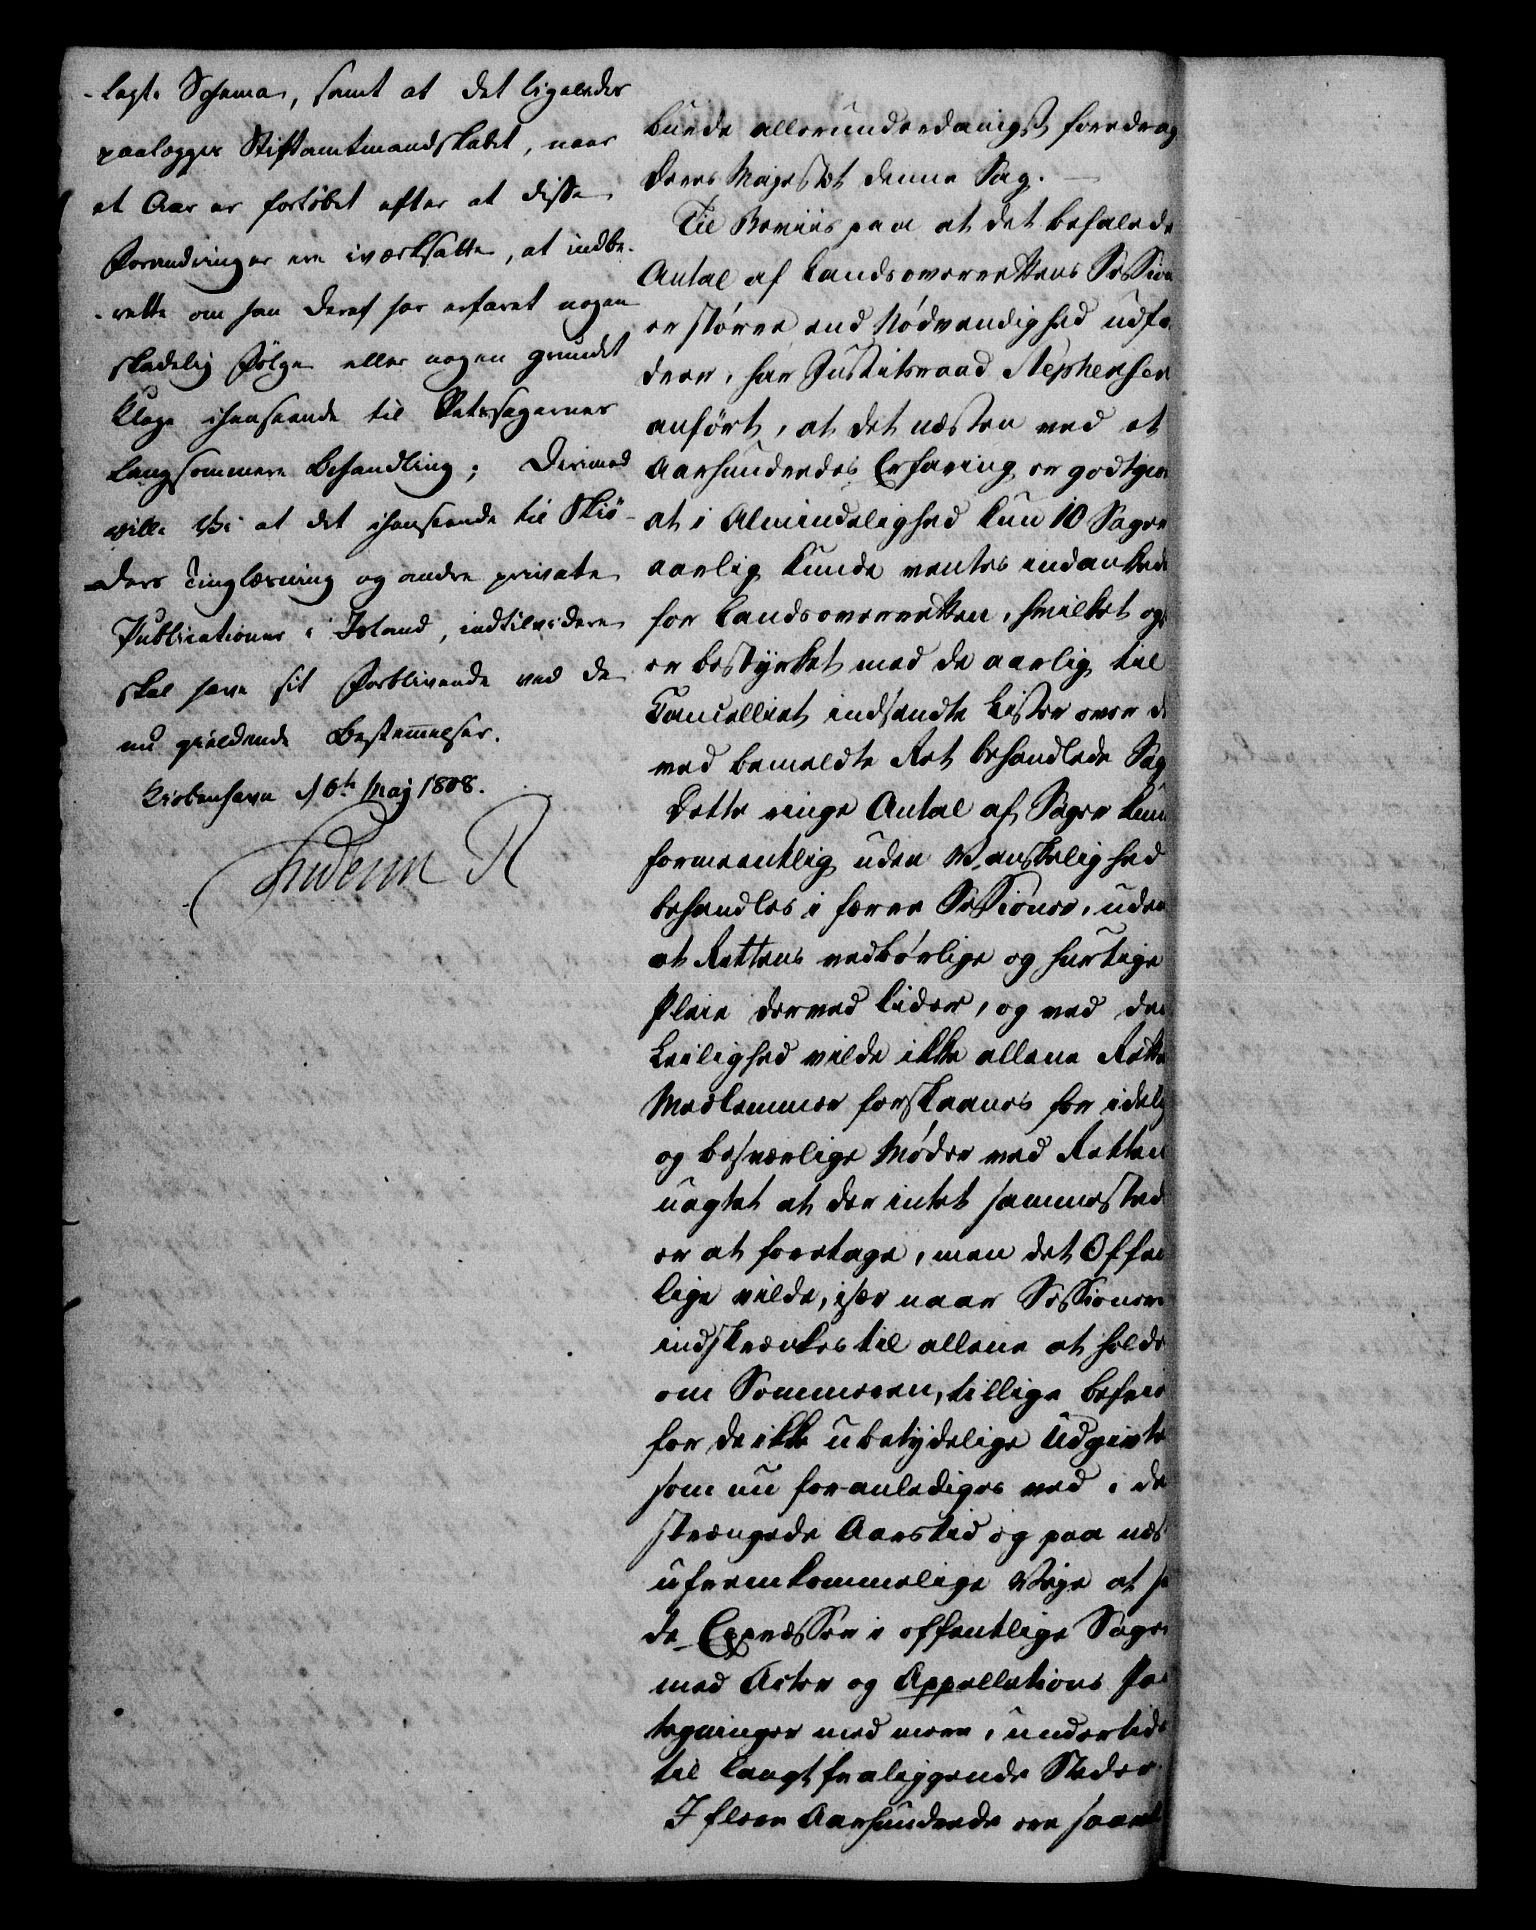 -lagte Schema, samt at det ligeledes
paalægges Stiftamtmandskabet, naar
et Aar er forløbet efter at disse
Forandringer ere iværksatte, at indbe-
-rette om han deraf har erfaret nogen
skadelig Følge eller nogen grundet
Klage ihenseende til Retssagernes
langsommere Behandling; Derimod
ville Vi at det ihenseende til Skiö-
-ders Tinglæsning og andre private
Publicationer i Island, indtilvidere
skal have sit Forblivende ved de
nu gieldende Bestemmelser.
Kiøbenhavn d 6te Maj 1808.
Frederik R
burde allerunderdanigst foredrag
Deres Majestæt denne Sag. —
Til Beviis paa at det befalede
Antal af Landsoverrettens Session
er større end Nødvendighed udfo
drer, har Justitsraad Stephensen
anført, at det næsten ved et
Aarhundredes Erfaring er godtgior
at i Almindelighed kun 10 Sager
aarlig kunde ventes indankede
for Landsoverretten, hvilket og
er bestyrket med de aarlig til
Cancelliet indsendte Lister over d
ved bemeldte Ret behandlede Sag
Dette ringe Antal af Sager kun
formeentlig uden Vanskelighed
behandles i færre Sessioner, uden
at Rettens vedbørlige og hurtige
Pleie derved lider, og ved den
Leilighed vilde ikke allene Rette
Medlemmer forskaanes for idelig
og besværlige Møder ved Retten
uagtet at der intet sammested
er at foretage, men det Offen
lige vilde, især naar Sessioner
indskrænkes til allene at holde
om Sommeren, tillige befrie
for de ikke ubetydelige Udgivte
som nu foranlediges ved i de
strængede Aarstid og paa næs
ufremkommelige Veje at s
de Expresser i offentlige Sager
med Acter og Appellations Pa
tegninger med mere, undertide
til langt fraliggende Steder.
I flere Aarhundrede ere saavel